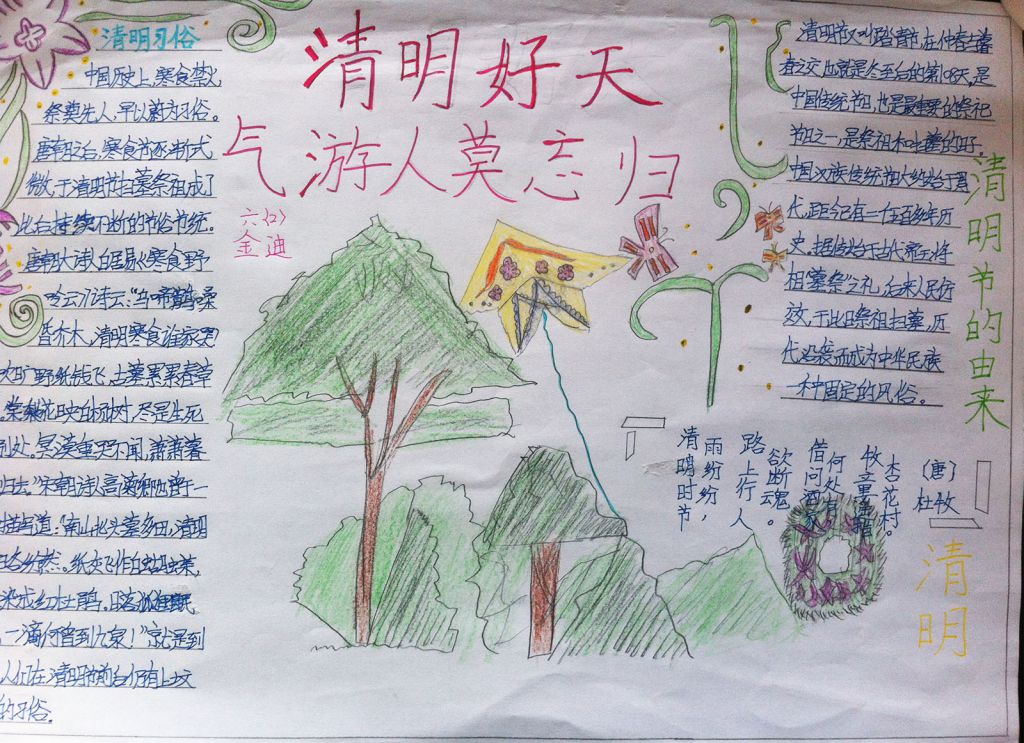 清明好天
气游人莫忘归
六(2)
金迪
清明习俗
中国历史上,寒食禁火,
祭奠先人,早以蔚为习俗。
唐朝之后,寒食节逐渐式
微,于清明节扫墓祭祖成了
此后持续不断的节俗书统。
唐朝大诗人白居易《寒食野
吟云》诗云:"乌啼鹊噪
昏乔木,清明寒食谁家哭
吹旷野纸钱飞,古墓累累春草
棠梨花映白杨树,尽是生死
别处。冥漠重哭不闻,萧萧暮
归去"宋朝诗人高菊卿也曾于一
描写道:"南山北头墓多田,清明
各纷然。纸灰飞作白蝴蝶,
染成红杜鹃。日落狐狸眠,
一滴何曾到九泉!"就是到
人们在清明节前后仍有上坟
的习俗。
清明节又叫踏青节,在仲春与暮
春之交,也就是冬至后的第108天,是
中国传统节日,也是最重要的祭祀
节日之一,是祭祖和扫墓的日子。
中国汉族传统
代,距今已有二千五百多年历
史,据传始于古代帝王将
相"墓祭"之礼,后来人民仿
效,于此日祭祖扫墓,历
代沿袭而成为中华民族
一种固定的风俗。
清明节的由来
(唐)
杜牧
清明时节
雨纷纷,
路上行人
欲断魂。
借问酒家
何处有
牧童遥指
杏花村。
清明